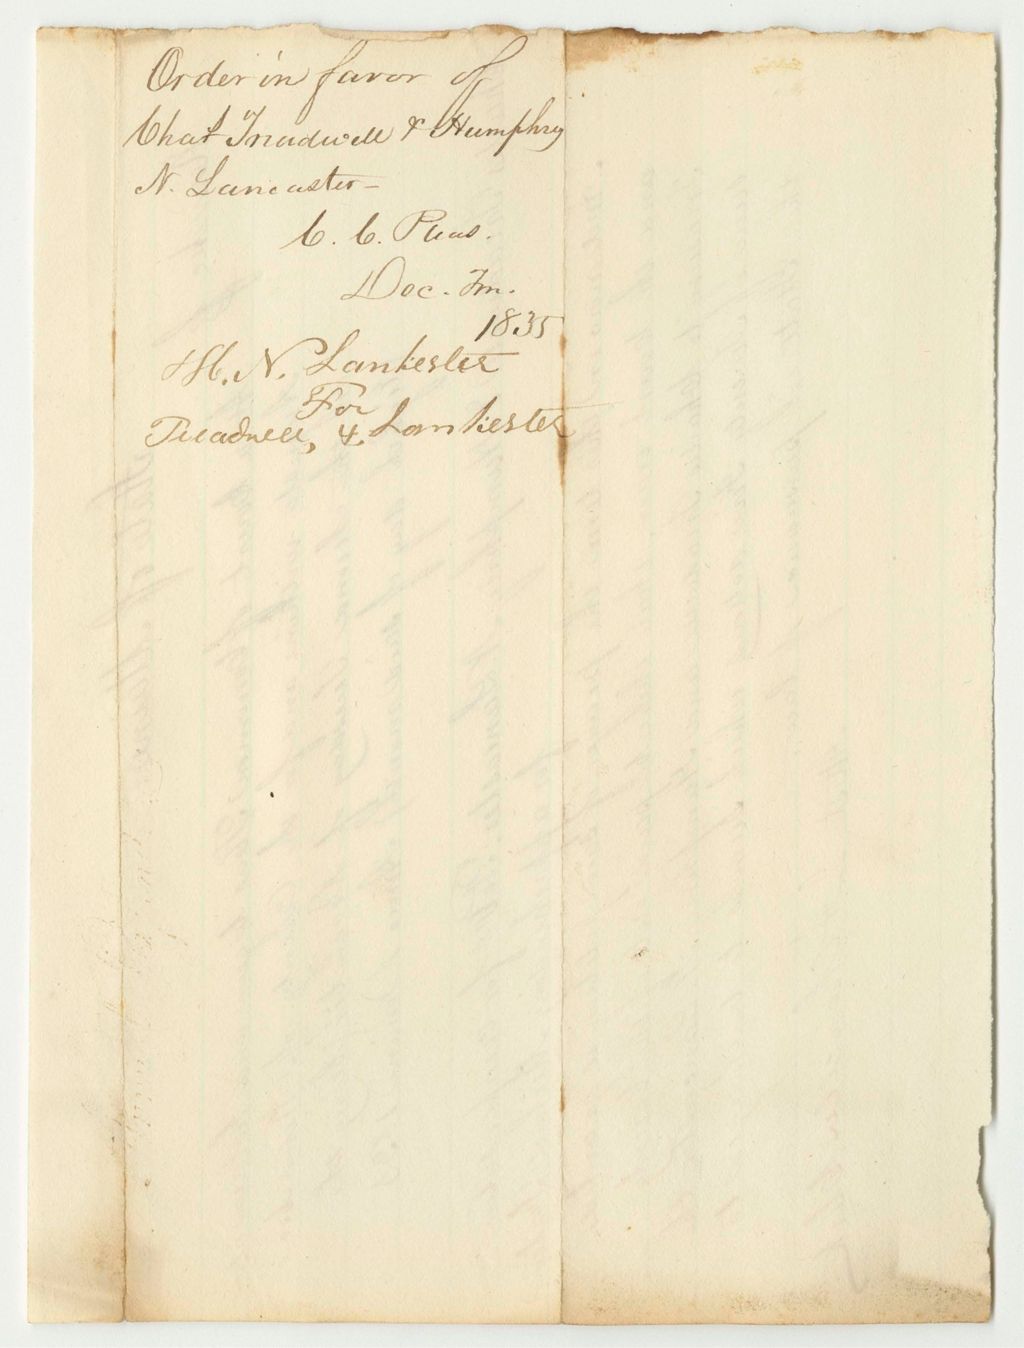 Order in favor of
Chas Treadwell & Humphry
N. Lancaster -
C. C. Pleas.
Dec. Tm.
1835
H. N. Lankester
For
Treadwell, & Lankester